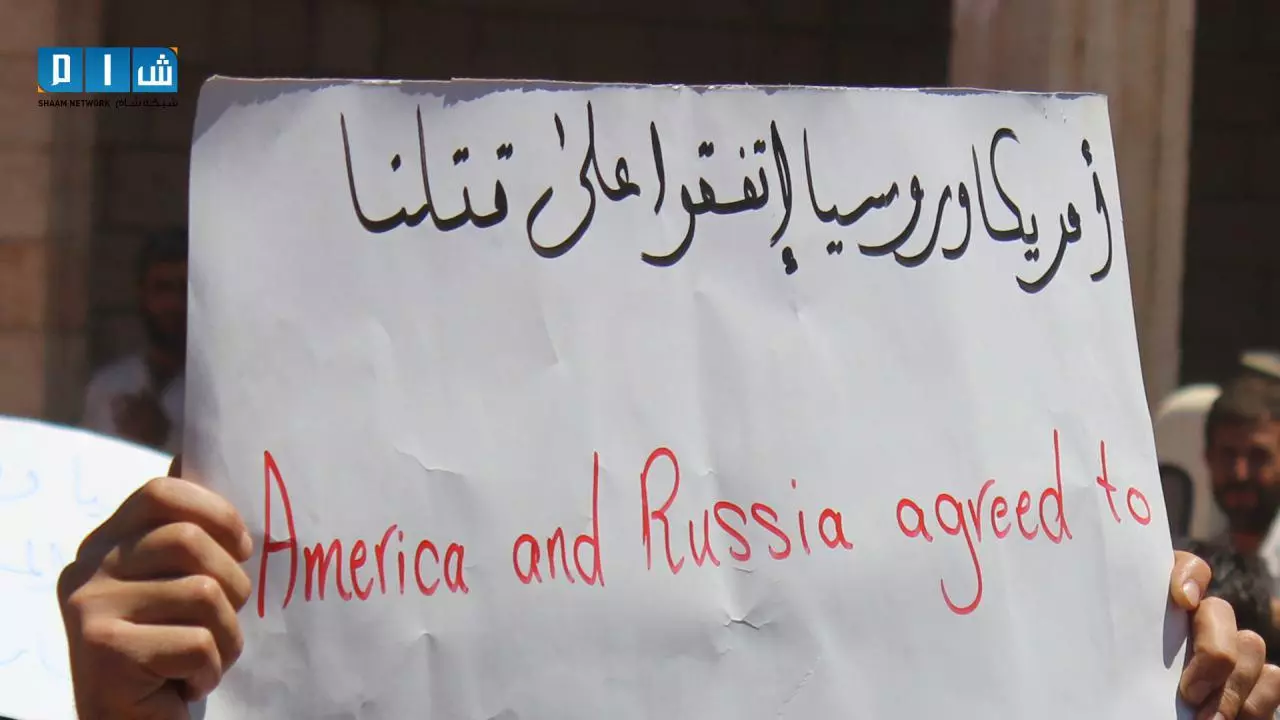 شام
SHAAM NETWORK شبكة شام
أمريكا وروسيا إتفقوا على قتلنا
America and Russia agreed to